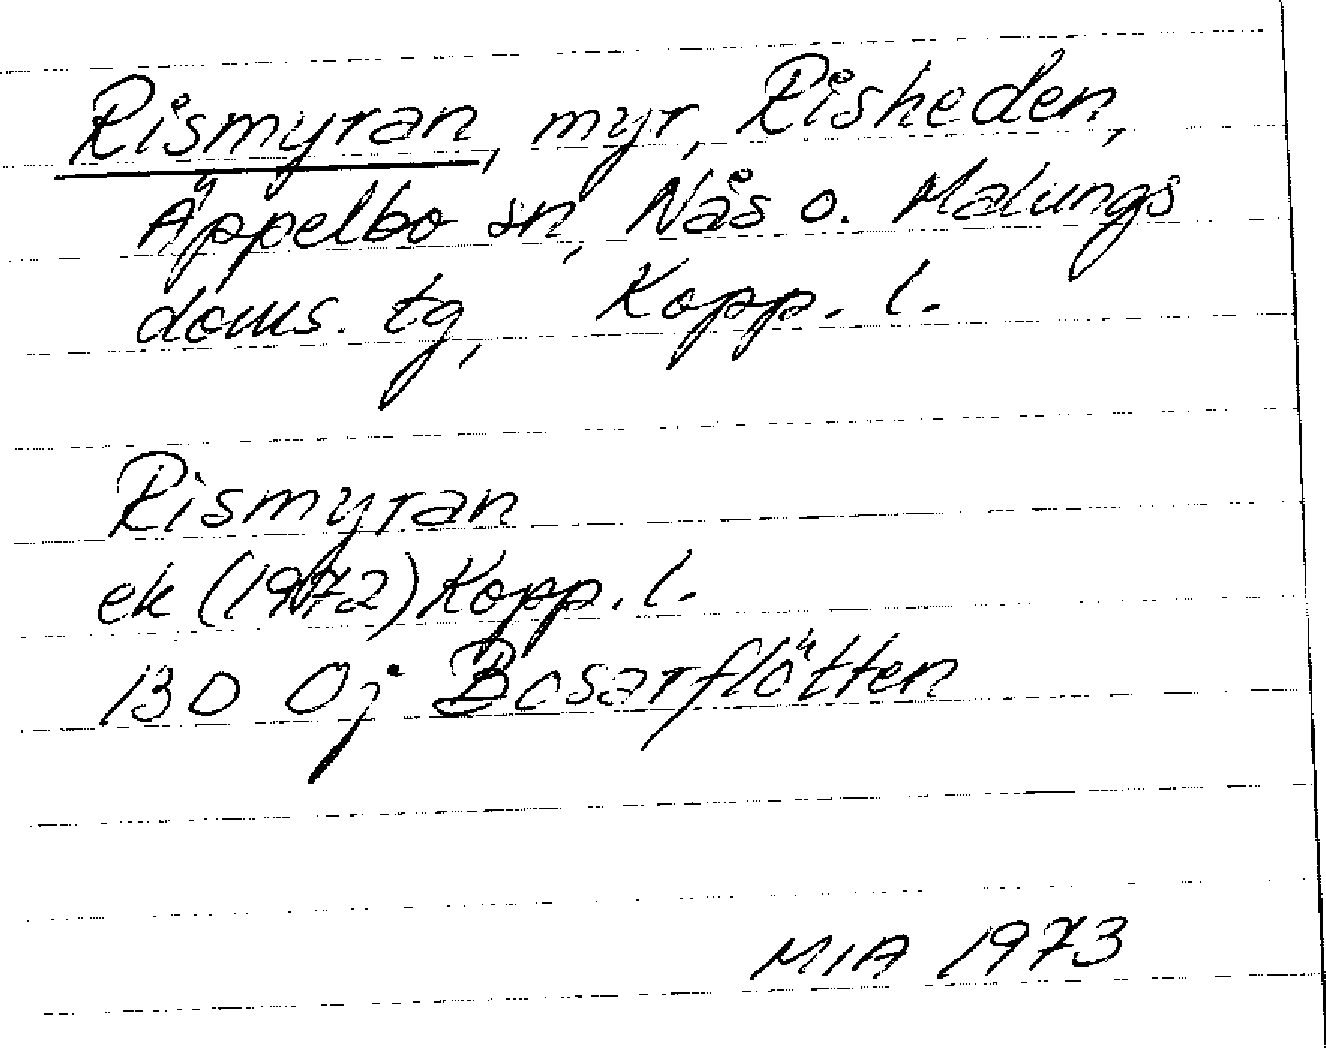 Rismyran, myr, Risheden,
Äppelbo sn, Nås o. Malungs
doms. tg, Kopp. l.
Rismyran
ek (1972) Kopp. l.
13D 0j Bosarflötten
MIA 1973